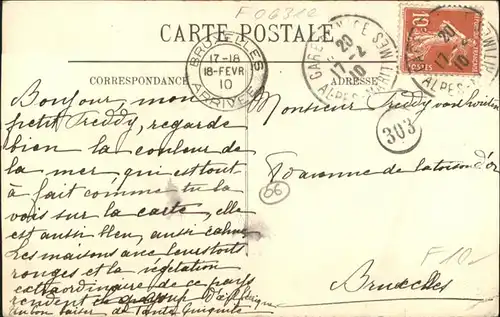 F 0631e
CARTE POSTALE
BRUXELLES
17-18
18-FEVR
10
ARRIVÉE
GARE DE
20
17-2
10
ALPES-MAR
15
POSTES
20
17-2
10
ALPES-M
CORRESPONDANCE
ADRESSE
Bonjour, mon
petit Freddy, regarde
bien la couleur de
la mer qui est tout
à fait comme tu la
vois sur la carte, elle
est aussi bleu, aussi calme
Les maisons avec leurs toits
rouges et la végétation
extraordinaire de ce pays
rendent
un bon baiser de Tante Guiguite
Monsieur Freddy
303
7 avenue de la toison d'or
66
F 10 -
Bruxelles